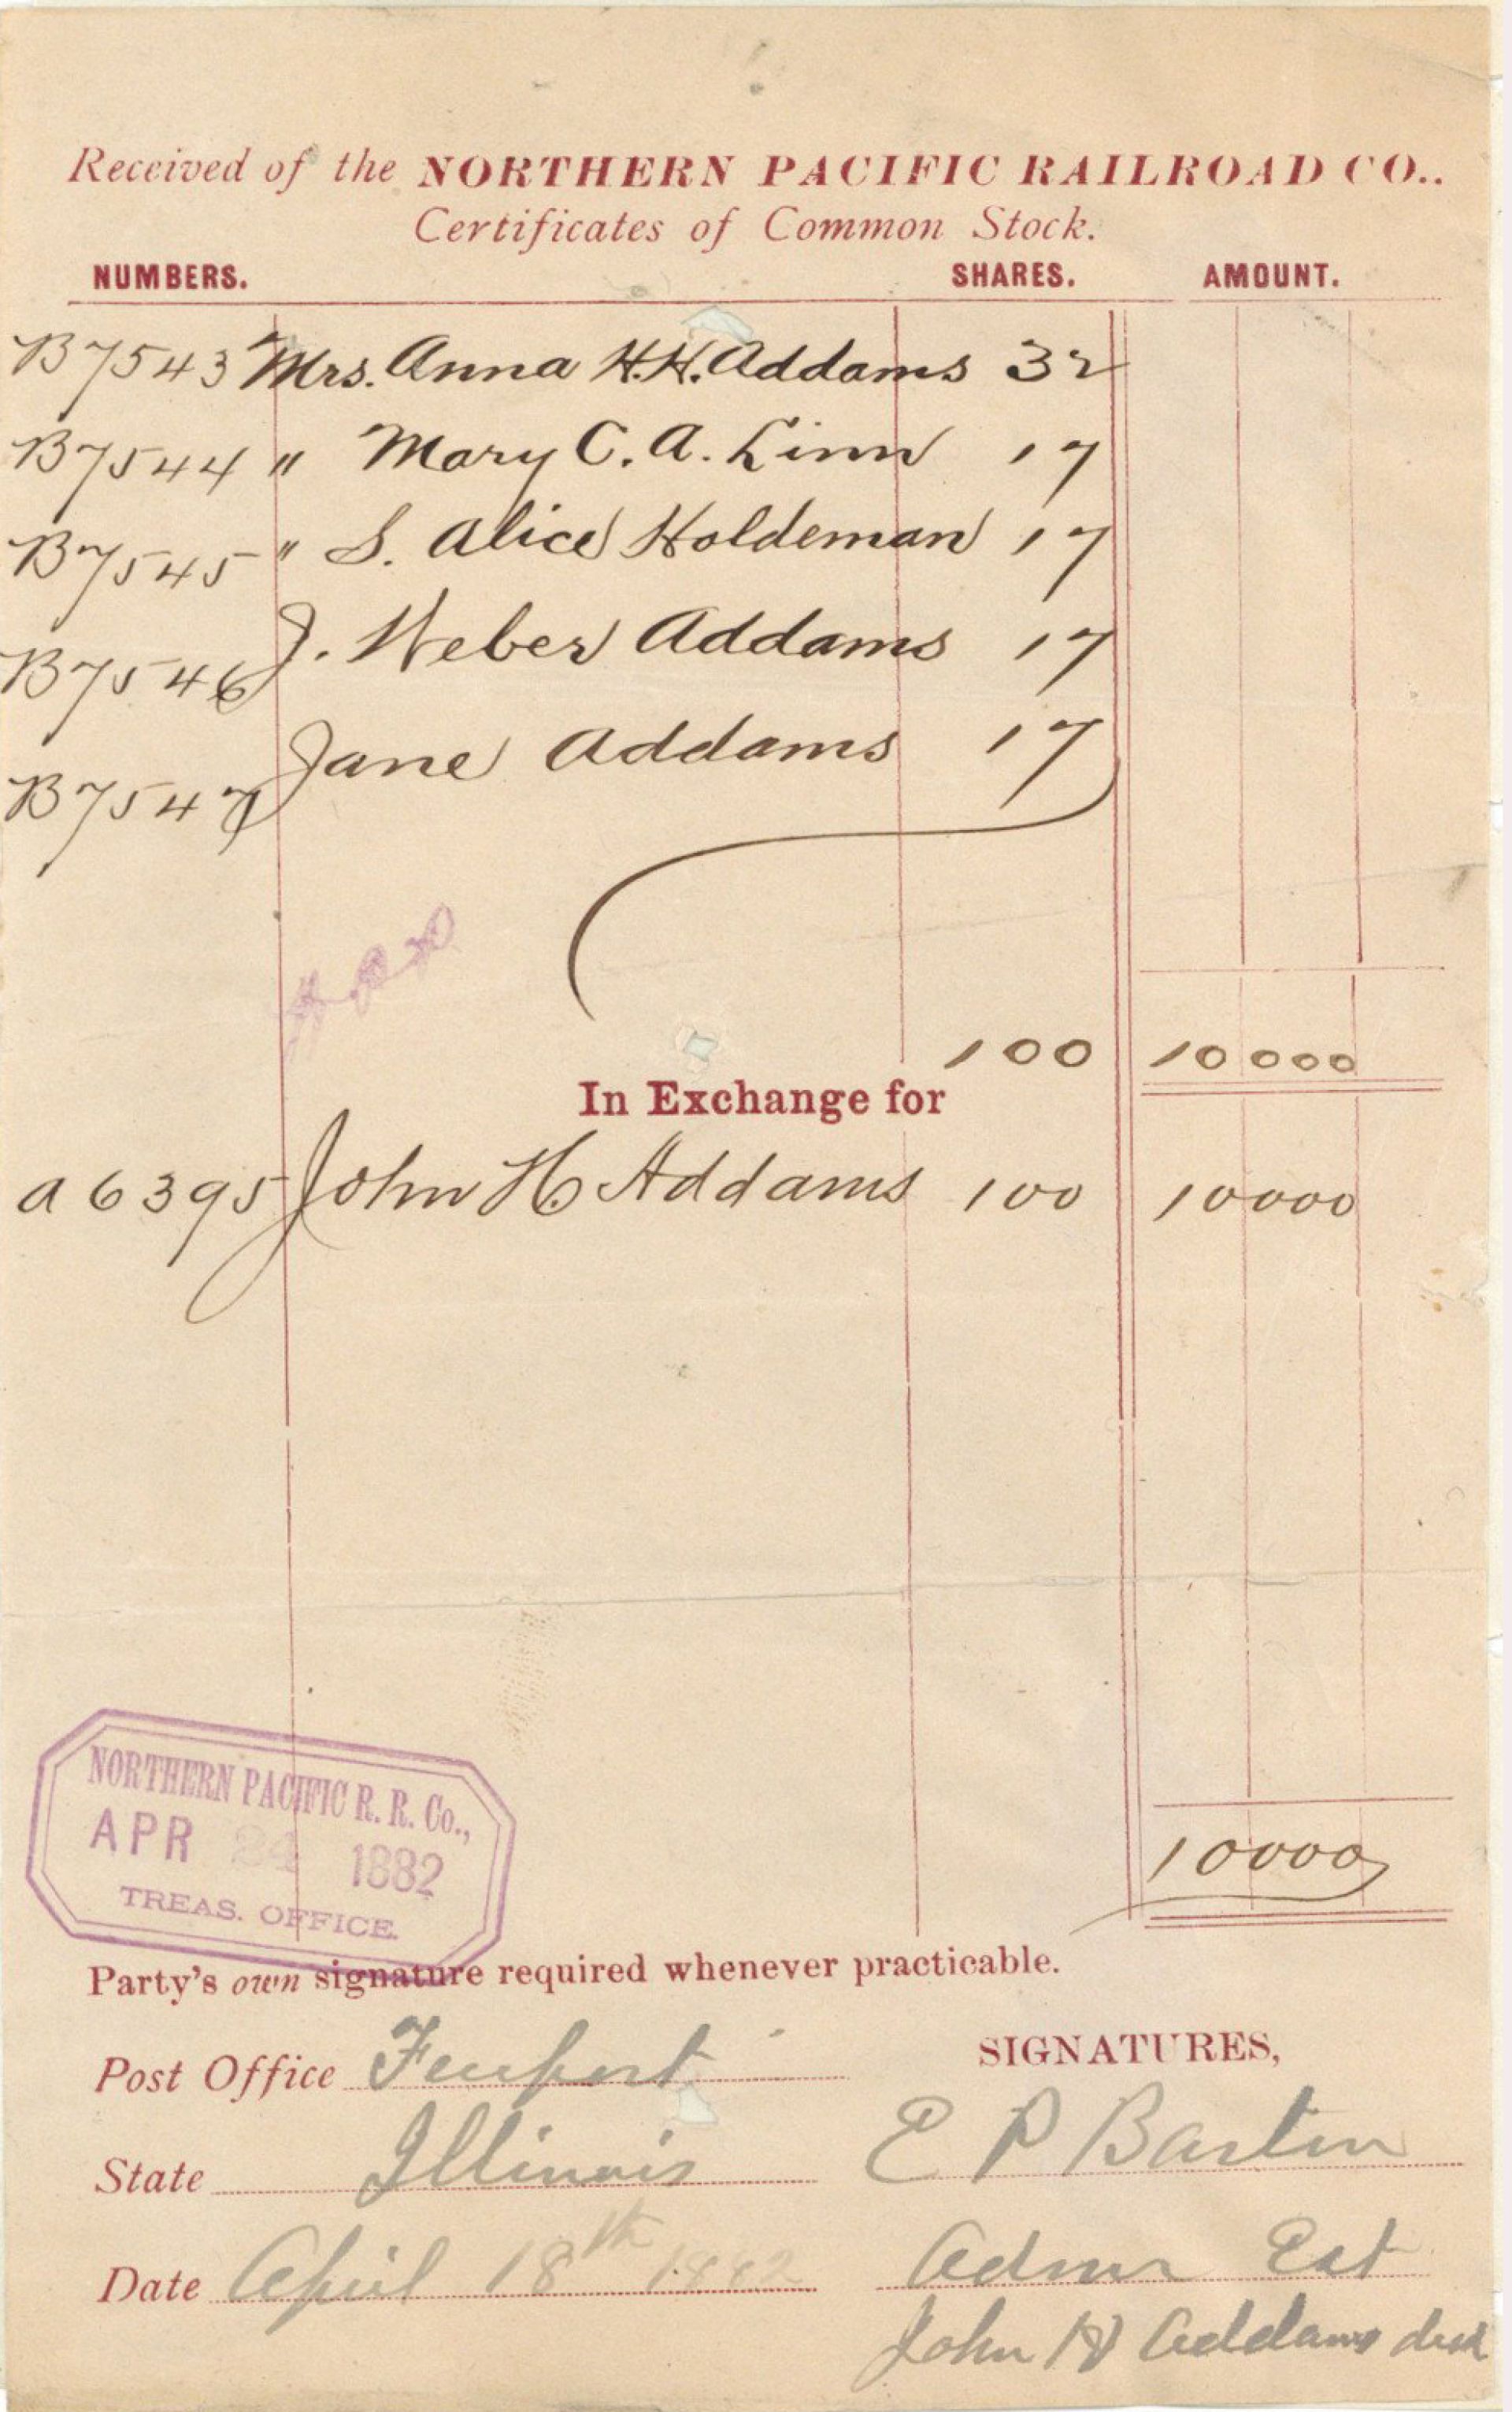 Received of the NORTHERN PACIFIC RAILROAD CO..
Certificates of Common Stock.
NUMBERS. SHARES. AMOUNT.
B7543 Mrs. Anna H.H. Addams 32
B7544 " Mary C. A. Linn 17
B7545 " S. Alice Holdeman 17
B7546 J. Weber Addams 17
B7547 Jane Addams 17
100 10000
In Exchange for
A6395 John H Addams 100 10000
NORTHERN PACIFIC R. R. Co.,
APR 24 1882
TREAS. OFFICE.
10000
Party's own signature required whenever practicable.
Post Office Freeport
SIGNATURES,
State Illinois
E P Barton
Date April 18th 1882
Admr Est
John H Addams decd